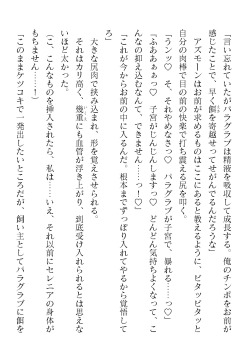 「言い忘れていたがパラグラブは精液を吸収して成長する。俺のチンポをお前が
感じたことで、早く餌を寄越せってせがんでるんだろうな」
アズモーンはお前が求めるものはここにあると教えるように、ピタッピタッと
自分の肉棒で目の前の快楽に打ち震える尻を叩く。
「ランッ♡　そ、それやめなさっ♡　パラグラブが子宮で、暴れる……っ♡」
「ふああぁぁっ♡　子宮がじんじんしますっ♡　どんどん気持ちよくなって、こ
んなの抑え込むなんて、できません……っ！♡」
「これが今からお前の中に入るんだ。根本までずっぽり入れてやるから覚悟し
大きな尻肉で挟み込まれ、形を覚えさせられる。
それはカリ高く、幾重にも血管が浮き上がり、到底受け入れられるとは思えな
いほど太かった。
（こ、こんなものを挿入されたら、私は……いえ、それ以前にセレニアの身体が
もちません……！）
「このままケツコキで一発出したいところだが、飼い主としてパラグラブに餌を